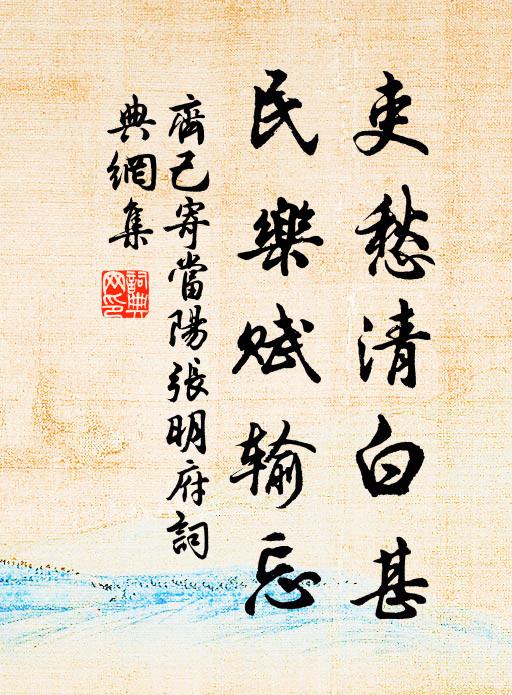 吏愁清白甚
民樂賦输忘
齊己寄當陽張明府詞
典網集
詞典
网印